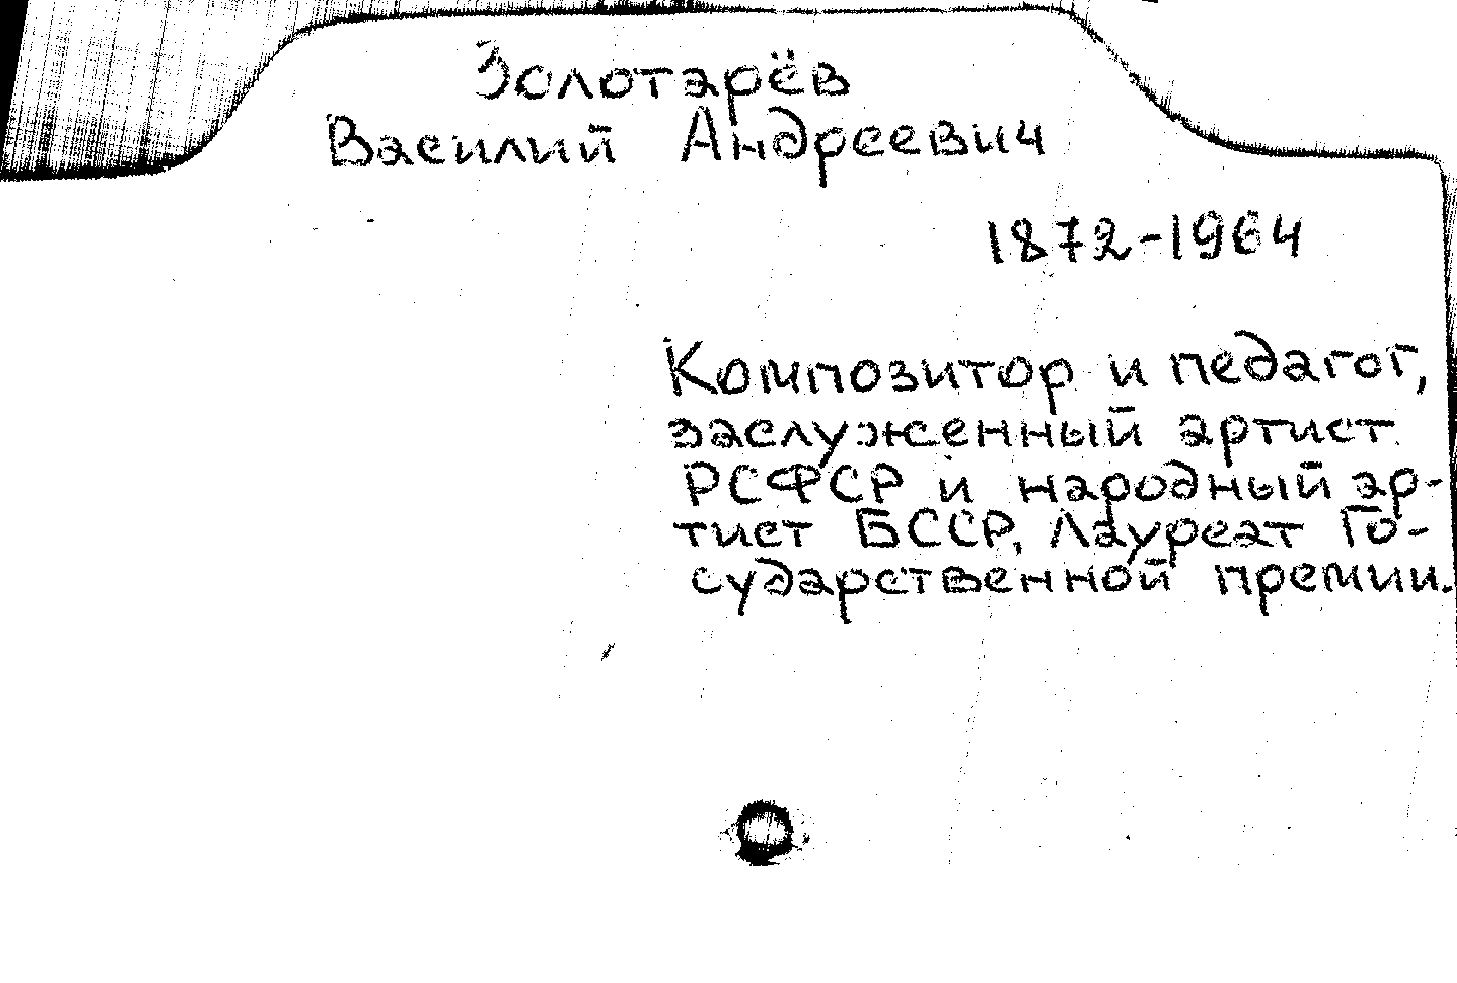 Золотарёв
Василий Андреевич
1872-1964
Композитор и педагог,
заслуженный артист
РСФСР и народный ар-
тист БССР, Лауреат Го-
сударственной премии.